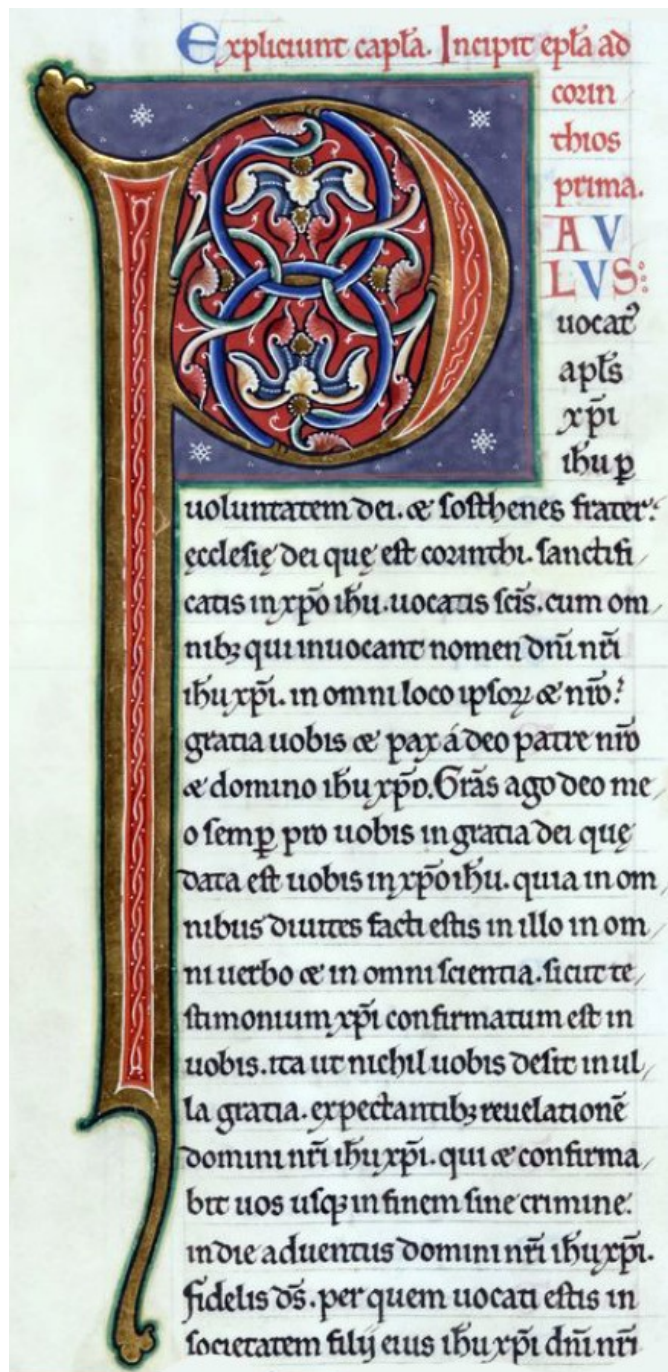 Expliciunt capl̃a. Incipit ep̃la ad
corin
thios
prima.
PAV
LVS:
uocat᷒
apl̃s
xp̃i
ih̃u ꝑ
uoluntatem dei. & sosthenes frater:
ęcclesię dei quę est corinthi. sanctifi
catis in xp̃o ih̃u. uocatis sc̃is. cum om
nibꝫ qui inuocant nomen dñi nr̃i
ih̃u xp̃i. in omni loco ipsoꝝ & nr̃o.
gratia uobis & pax á deo patre nr̃o
& domino ih̃u xp̃o. Grãs ago deo me
o semꝑ pro uobis in gratia dei quę
data est uobis in xp̃o ih̃u. quia in om
nibus diuites facti estis in illo in om
ni uerbo & in omni scientia. sicut te
stimonium xp̃i confirmatum est in
uobis. ita ut nichil uobis desit in ul
la gratia. expectantibꝫ reuelationẽ
domini nr̃i ih̃u xp̃i. qui & confirma
bit uos usqꝫ in finem sine crimine.
in die aduentus domini nr̃i ih̃u xp̃i.
fidelis d̃s. per quem uocati estis in
societatem filij eius ih̃u xp̃i dñi nr̃i